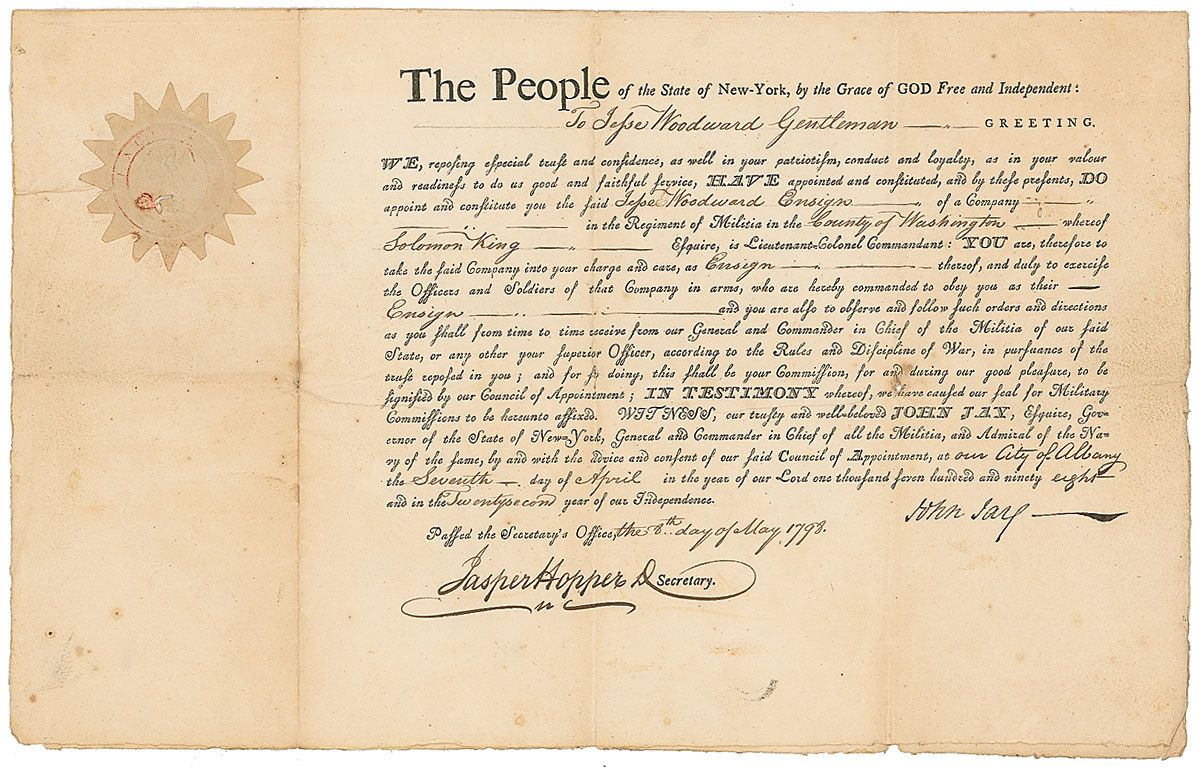 The People of the State of New-York, by the Grace of GOD Free and Independent:
To Jeſse Woodward Gentleman GREETING.
WE, repoſing eſpecial truſt and confidence, as well in your patriotiſm, conduct and loyalty, as in your valour
and readineſs to do us good and faithful ſervice, HAVE appointed and conſtituted, and by theſe preſents, DO
appoint and conſtitute you the ſaid Jeſse Woodward Ensign of a Company
in the Regiment of Militia in the County of Washington whereof
Solomon King Eſquire, is Lieutenant-Colonel Commandant: YOU are, therefore to
take the ſaid Company into your charge and care, as Ensign thereof, and duly to exerciſe
the Officers and Soldiers of that Company in arms, who are hereby commanded to obey you as their
Ensign and you are alſo to obſerve and follow ſuch orders and directions
as you ſhall from time to time receive from our General and Commander in Chief of the Militia of our ſaid
State, or any other your ſuperior Officer, according to the Rules and Diſcipline of War, in purſuance of the
truſt repoſed in you; and for ſo doing, this ſhall be your Commiſſion, for and during our good pleaſure, to be
ſignified by our Council of Appointment; IN TESTIMONY whereof, we have cauſed our ſeal for Military
Commiſſions to be hereunto affixed. WITNESS, our truſty and well-beloved JOHN JAY, Eſquire, Gov-
ernor of the State of New-York, General and Commander in Chief of all the Militia, and Admiral of the Na-
vy of the ſame, by and with the advice and conſent of our ſaid Council of Appointment, at our City of Albany
the Seventh day of April in the year of our Lord one thouſand ſeven hundred and ninety eight
and in the Twentysecond year of our Independence.
John Jay
Paſſed the Secretary's Office, the 8th day of May 1798.
Jasper Hopper D Secretary.